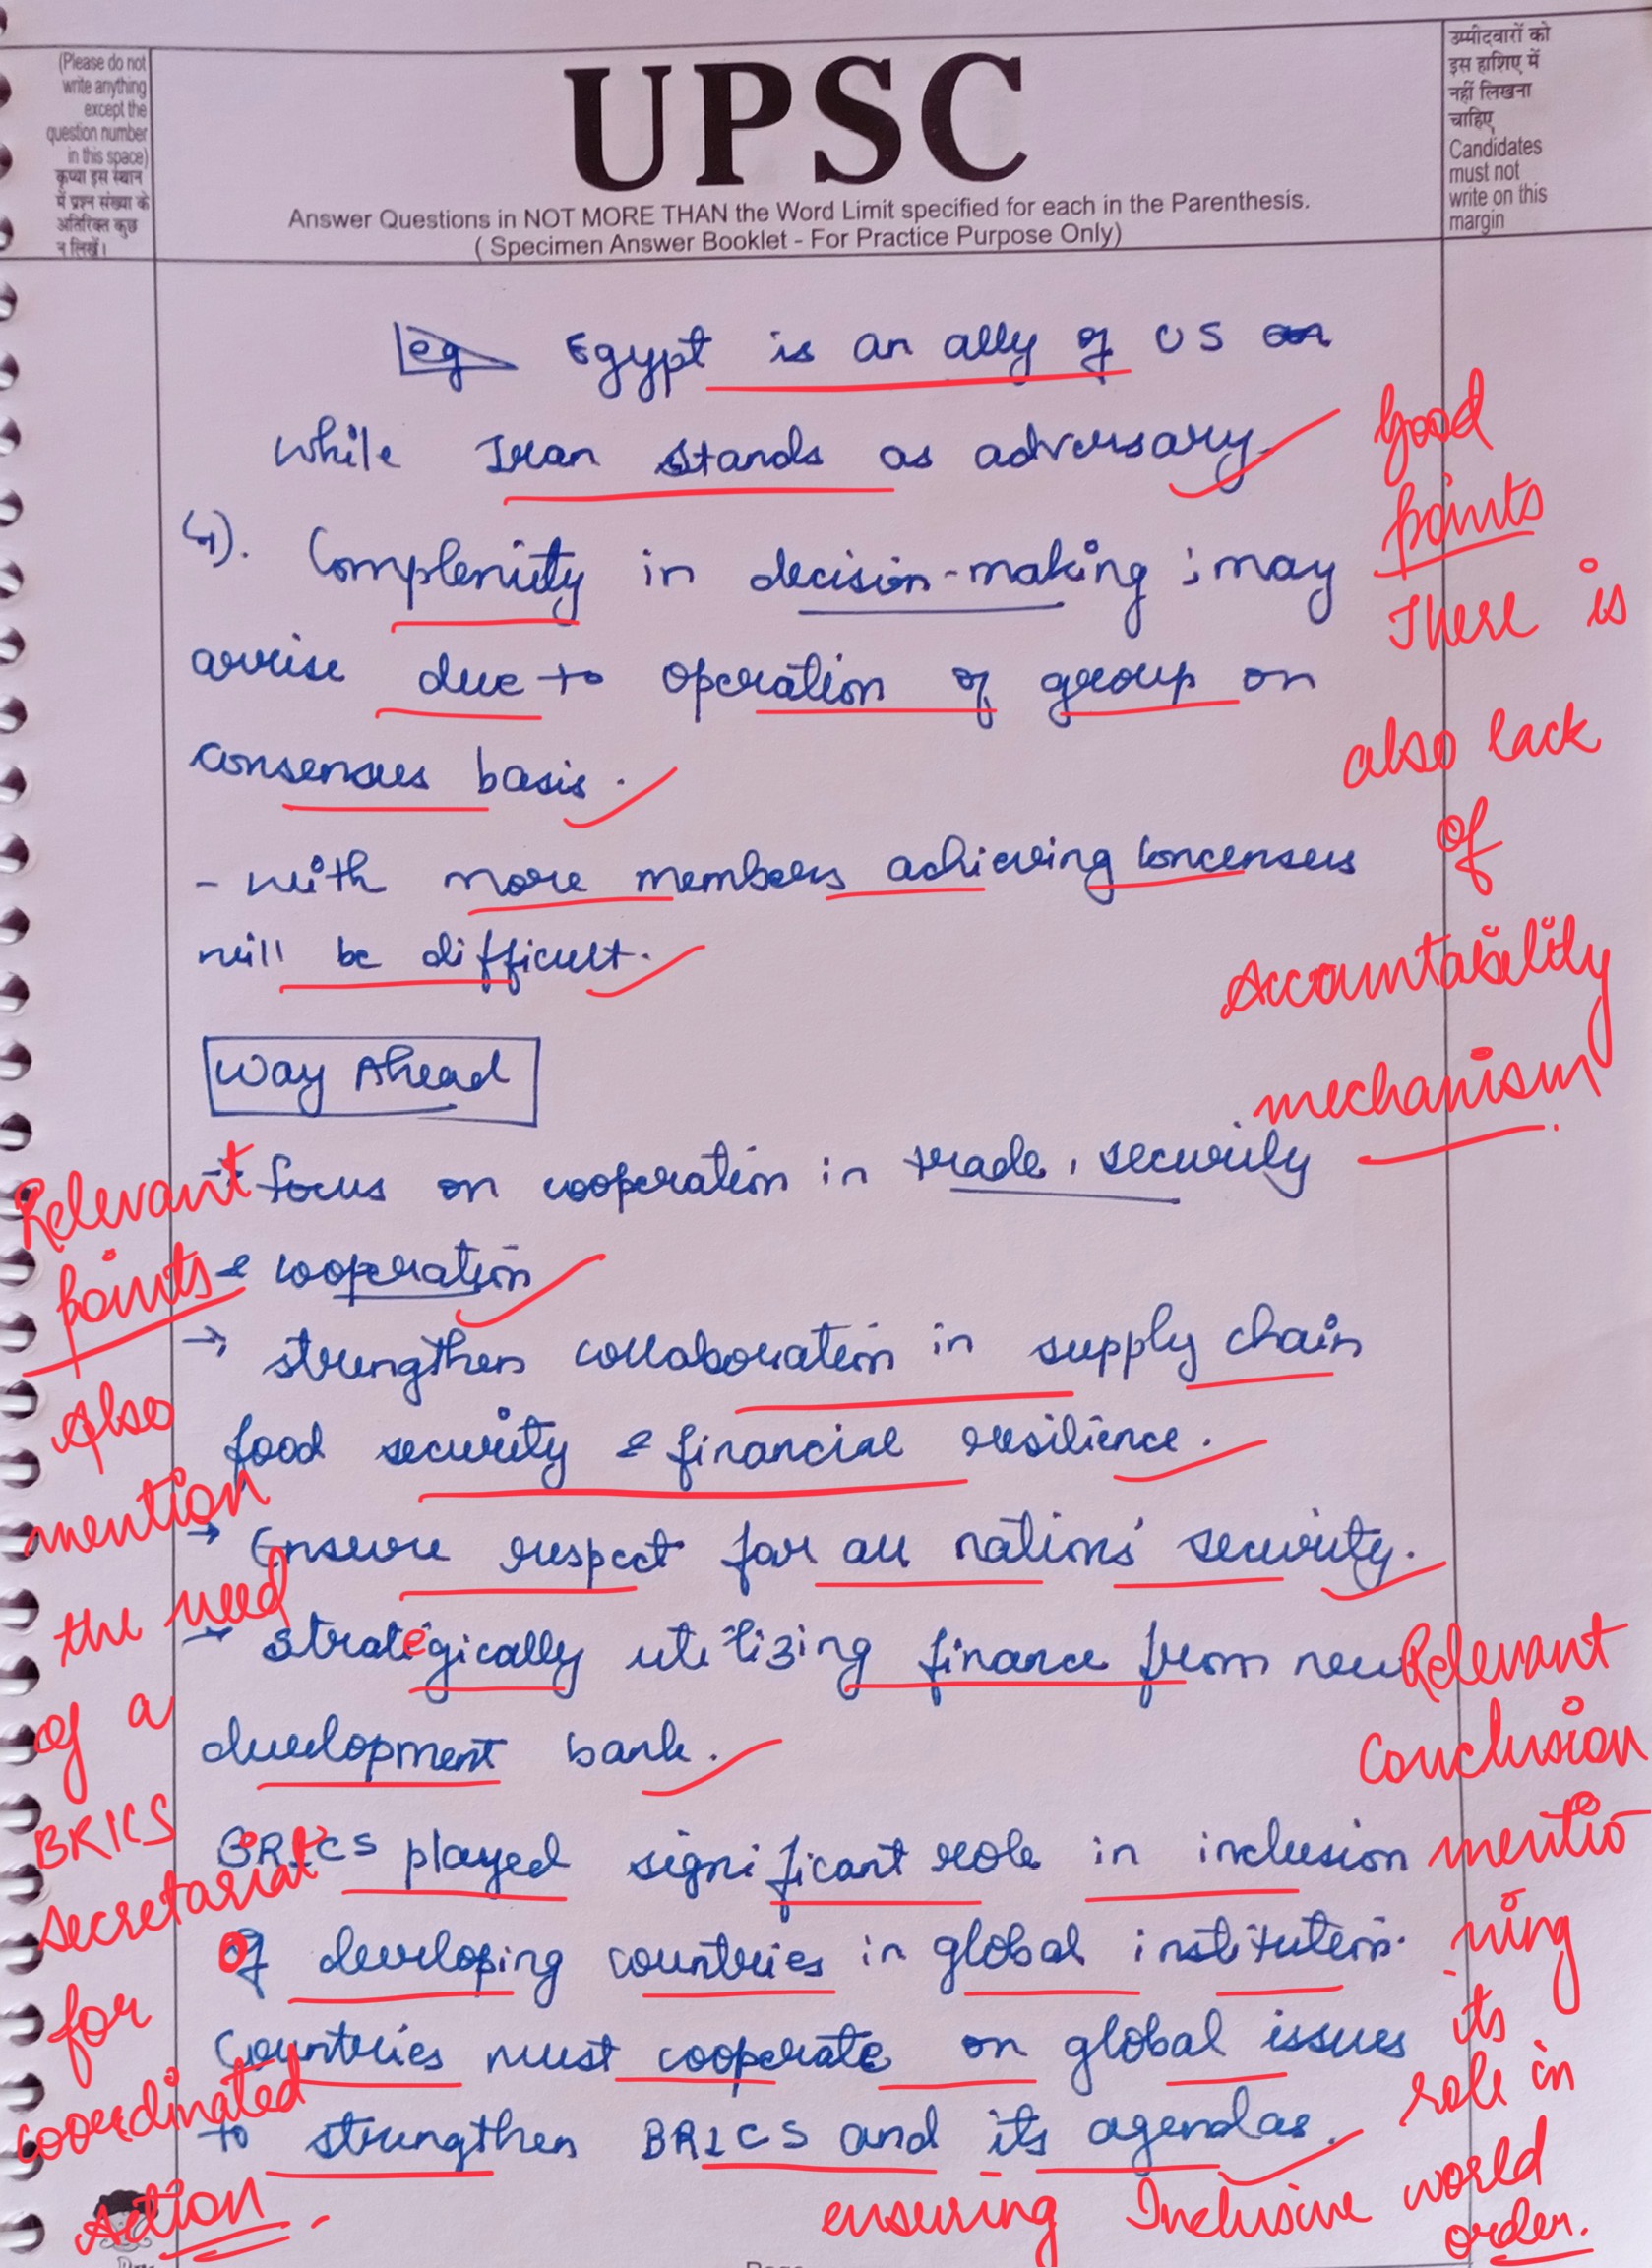 (Please do not
write anything
except the
question number
in this space)
कृप्या इस स्थान
में प्रश्न संख्या के
अतिरिक्त कुछ
न लिखें।
UPSC
Answer Questions in NOT MORE THAN the Word Limit specified for each in the Parenthesis.
( Specimen Answer Booklet - For Practice Purpose Only)
उम्मीदवारों को
इस हाशिए में
नहीं लिखना
चाहिए
Candidates
must not
write on this
margin
eg Egypt is an ally of US
while Iran stands as adversary.
4). Complexity in decision-making ; may
arrise due to operation of group on
consensus basis.
- with more members achieving concensus
will be difficult.
Good
points
There is
also lack
of
Accountability
mechanism.
Way Ahead
→ focus on cooperation in trade, security
& cooperation
→ strengthen collaboration in supply chain
food security & financial resilience.
→ Ensure respect for all nations' security.
→ strategically utilizing finance from new
development bank.
BRICS played significant role in inclusion
Of developing countries in global institution.
Countries must cooperate on global issues
to strengthen BRICS and its agendas.
Relevant
points
Also
mention
the need
of a
BRICS
secretariat
for
coordinated
Action.
Relevant
conclusion
mentio
ning
its
role in
ensuring Inclusive world
order.